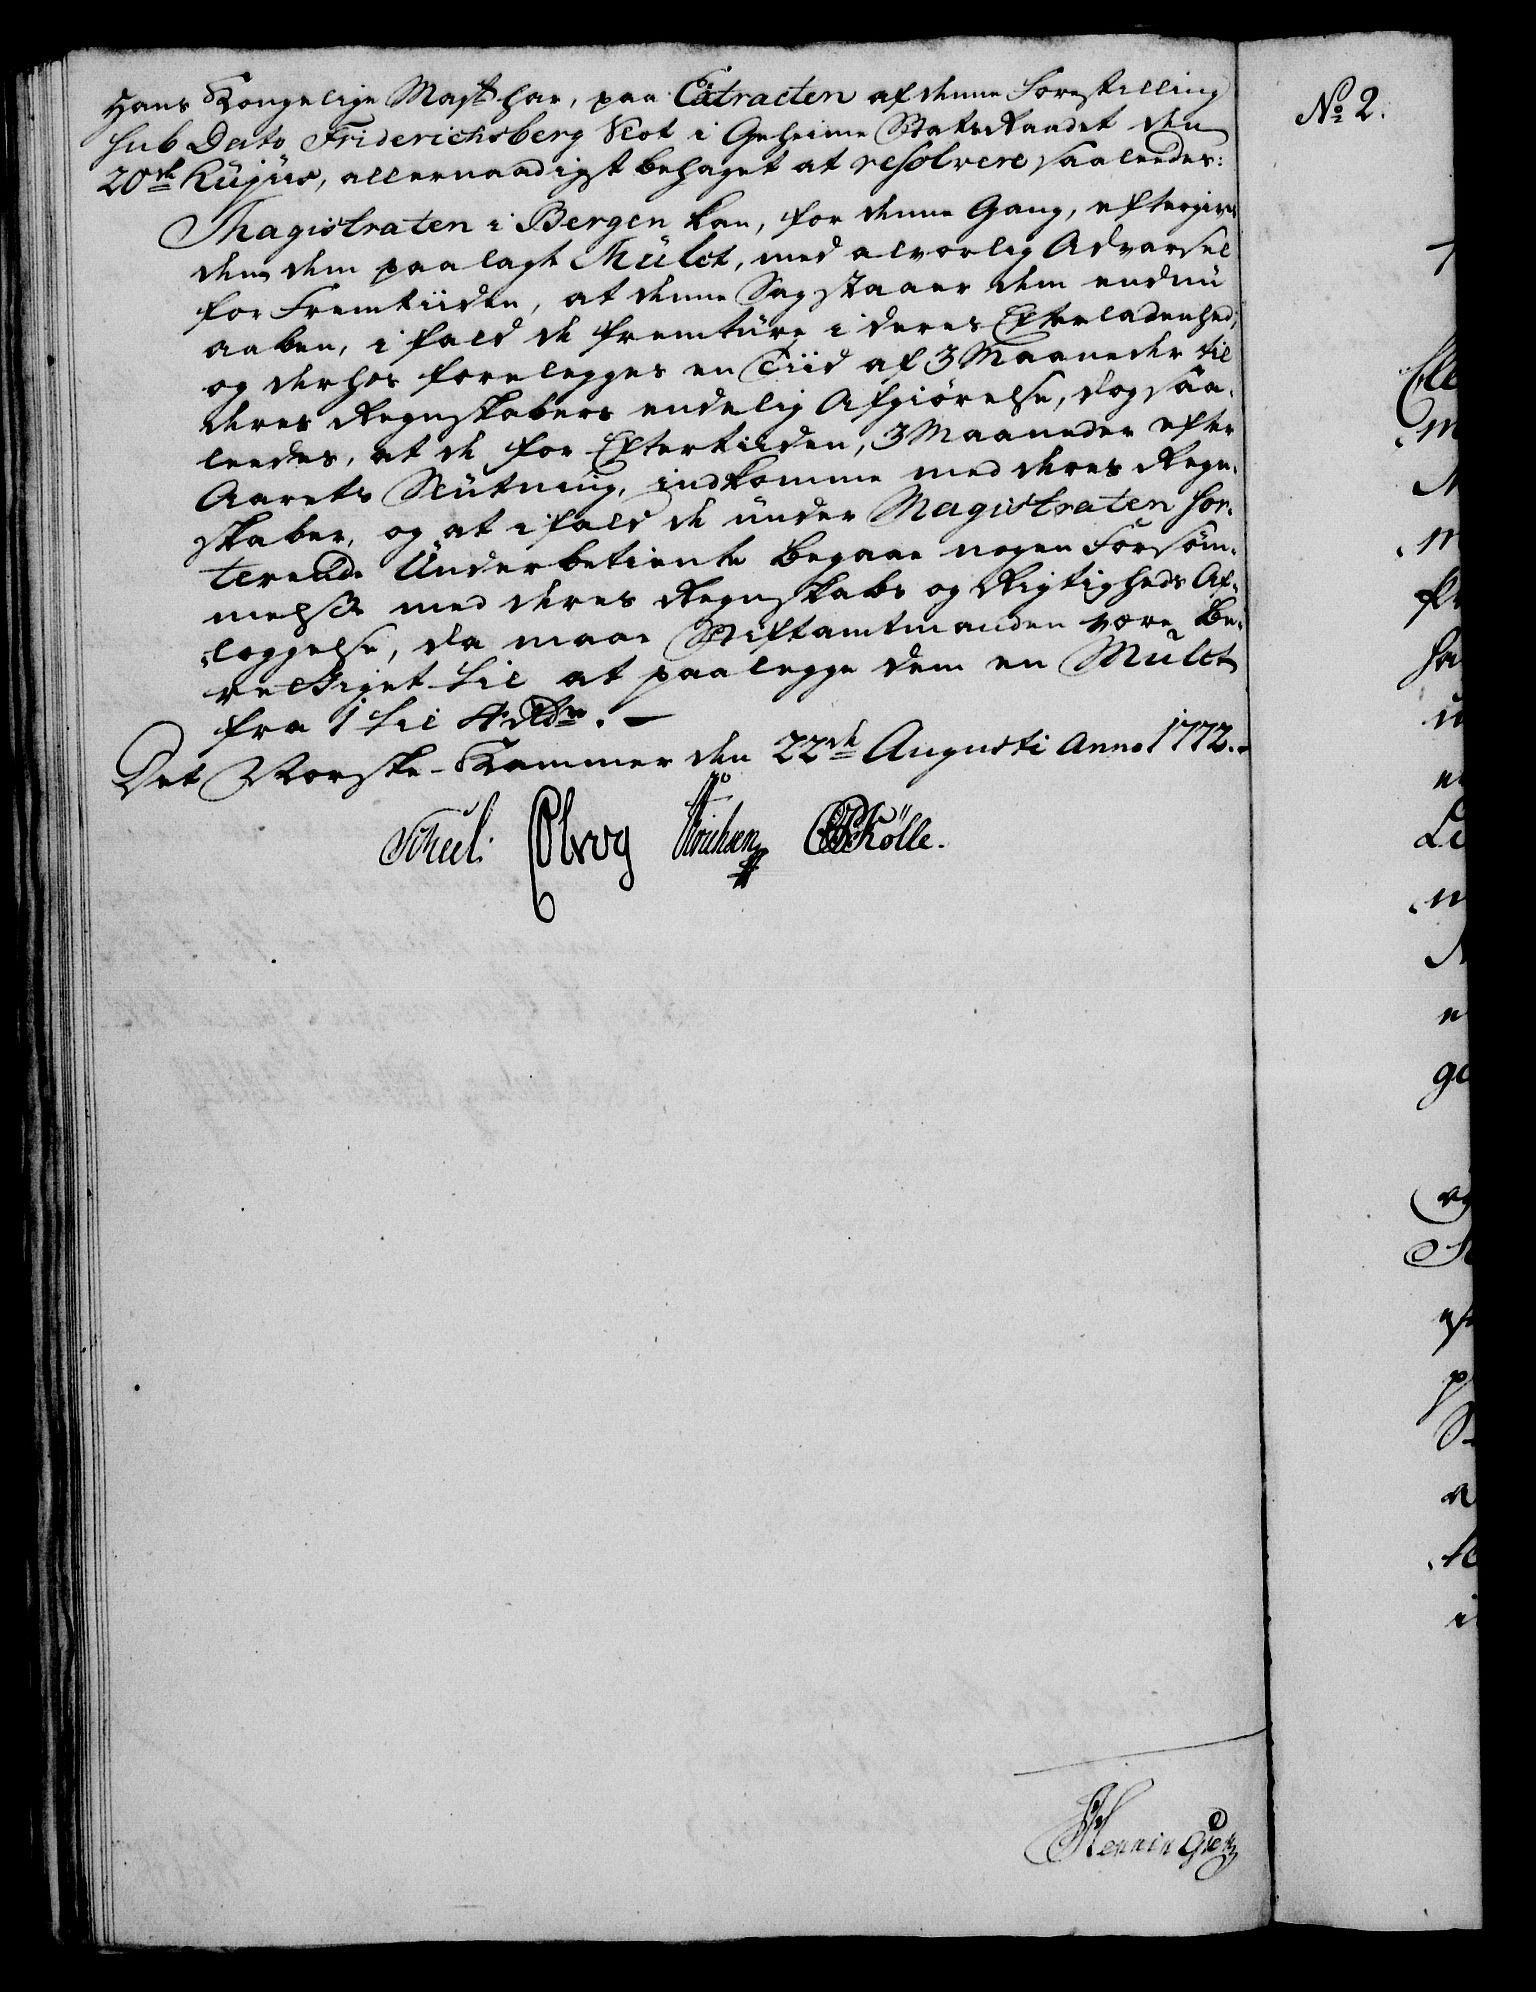 Hans Kongelige Majt har, paa Extracten af denne Forestilling
sub Dato Friderichsberg Slot i Geheime StatsRaadet den
20de hujus, allernaadigst behaget at resolvere saaledes:
Magistraten i Bergen kan, for denne Gang, eftergives
den dem paalagte Mulct, med alvorlig Advarsel
for Fremtiiden, at denne Sag staaer dem endnu
aaben, i fald de fremture i deres Efterladenhed;
og derhos forelegges en Tiid af 3 Maaneder til
deres Regnskabers endelig Afgiørelse, dog saa-
ledes, at de for Eftertiiden, 3 Maaneder efter
Aarets Slutning, indkomme med deres Regn-
skaber, og at ifald de under Magistraten sor-
terende Underbetiente begaae nogen Forsøm-
melse med deres Regnskabs og Rigtigheds Af-
leggelse, da maae Stiftamtmanden være be-
rettiget til at paalegge dem en Mulct
fra 1 til 4 Rdr. –
Det Norske-Kammer den 22de Augusti Anno 1772.
Scheel.
Schølle.
Henning
No 2.